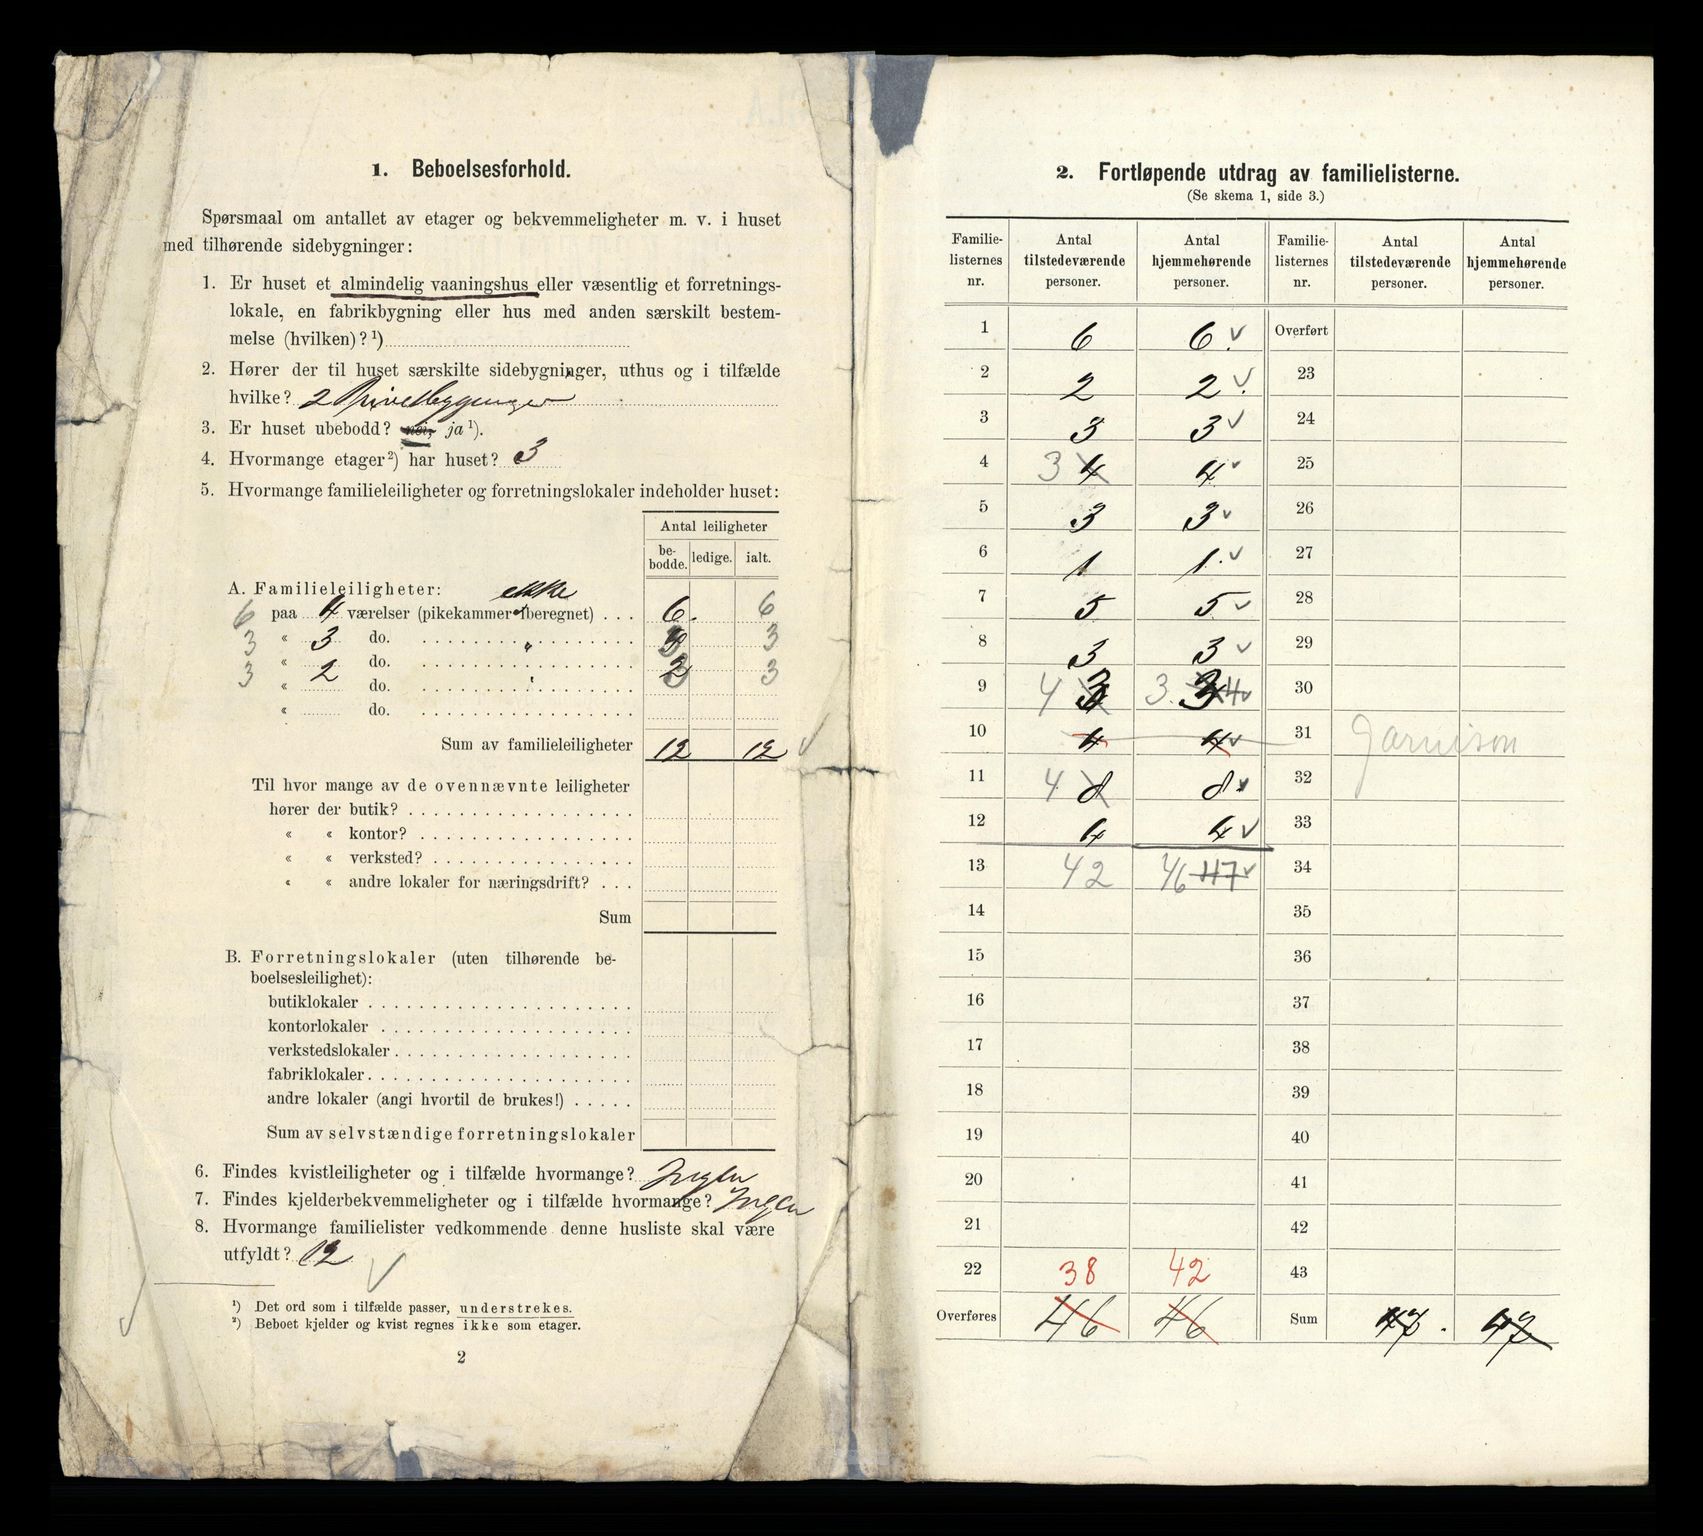 1. Beboelsesforhold.
Spørsmaal om antallet av etager og bekvemmeligheter m. v. i huset
med tilhørende sidebygninger:
1. Er huset et almindelig vaaningshus eller væsentlig et forretnings-
lokale, en fabrikbygning eller hus med anden særskilt bestem-
melse (hvilken)? ¹)
2. Hører der til huset særskilte sidebygninger, uthus og i tilfælde
hvilke? 2
3. Er huset ubebodd? nei, ja ¹).
4. Hvormange etager ²) har huset? 3
5. Hvormange familieleiligheter og forretningslokaler indeholder huset:
Antal leiligheter
be-bodde. ledige. ialt.
A. Familieleiligheter: ekke
6 paa 4 værelser (pikekammer beregnet) . . . 6. 6
3 « 3 do. . . . 3 3
3 « 2 do. . . . 3 3
« do. . . .
« do. . . .
Sum av familieleiligheter 12 12
Til hvor mange av de ovennævnte leiligheter
hører der butik? . . .
« « kontor? . . .
« « verksted? . . .
« « andre lokaler for næringsdrift? . . .
Sum
B. Forretningslokaler (uten tilhørende be-
boelsesleilighet):
butiklokaler . . .
kontorlokaler . . .
verkstedslokaler . . .
fabriklokaler . . .
andre lokaler (angi hvortil de brukes!) . . .
Sum av selvstændige forretningslokaler
6. Findes kvistleiligheter og i tilfælde hvormange? Ingen
7. Findes kjelderbekvemmeligheter og i tilfælde hvormange? Ingen
8. Hvormange familielister vedkommende denne husliste skal være
utfyldt? 12
¹) Det ord som i tilfælde passer, understrekes.
²) Beboet kjelder og kvist regnes ikke som etager.
2
2. Fortløpende utdrag av familielisterne.
(Se skema 1, side 3.)
Familie-listernes nr. Antal tilstedeværende personer. Antal hjemmehørende personer. Familie-listernes nr. Antal tilstedeværende personer. Antal hjemmehørende personer.
1 6 6 Overført
2 2 2 23
3 3 3 24
4 3 4 4 25
5 3 3 26
6 1 1 27
7 5 5 28
8 3 3 29
9 4 3 3 3 4 30
10 4 4 31 Garnison
11 4 8 8 32
12 4 4 33
13 42 46 47 34
14 35
15 36
16 37
17 38
18 39
19 40
20 41
21 42
22 38 42 43
Overføres 46 46 Sum 47 47